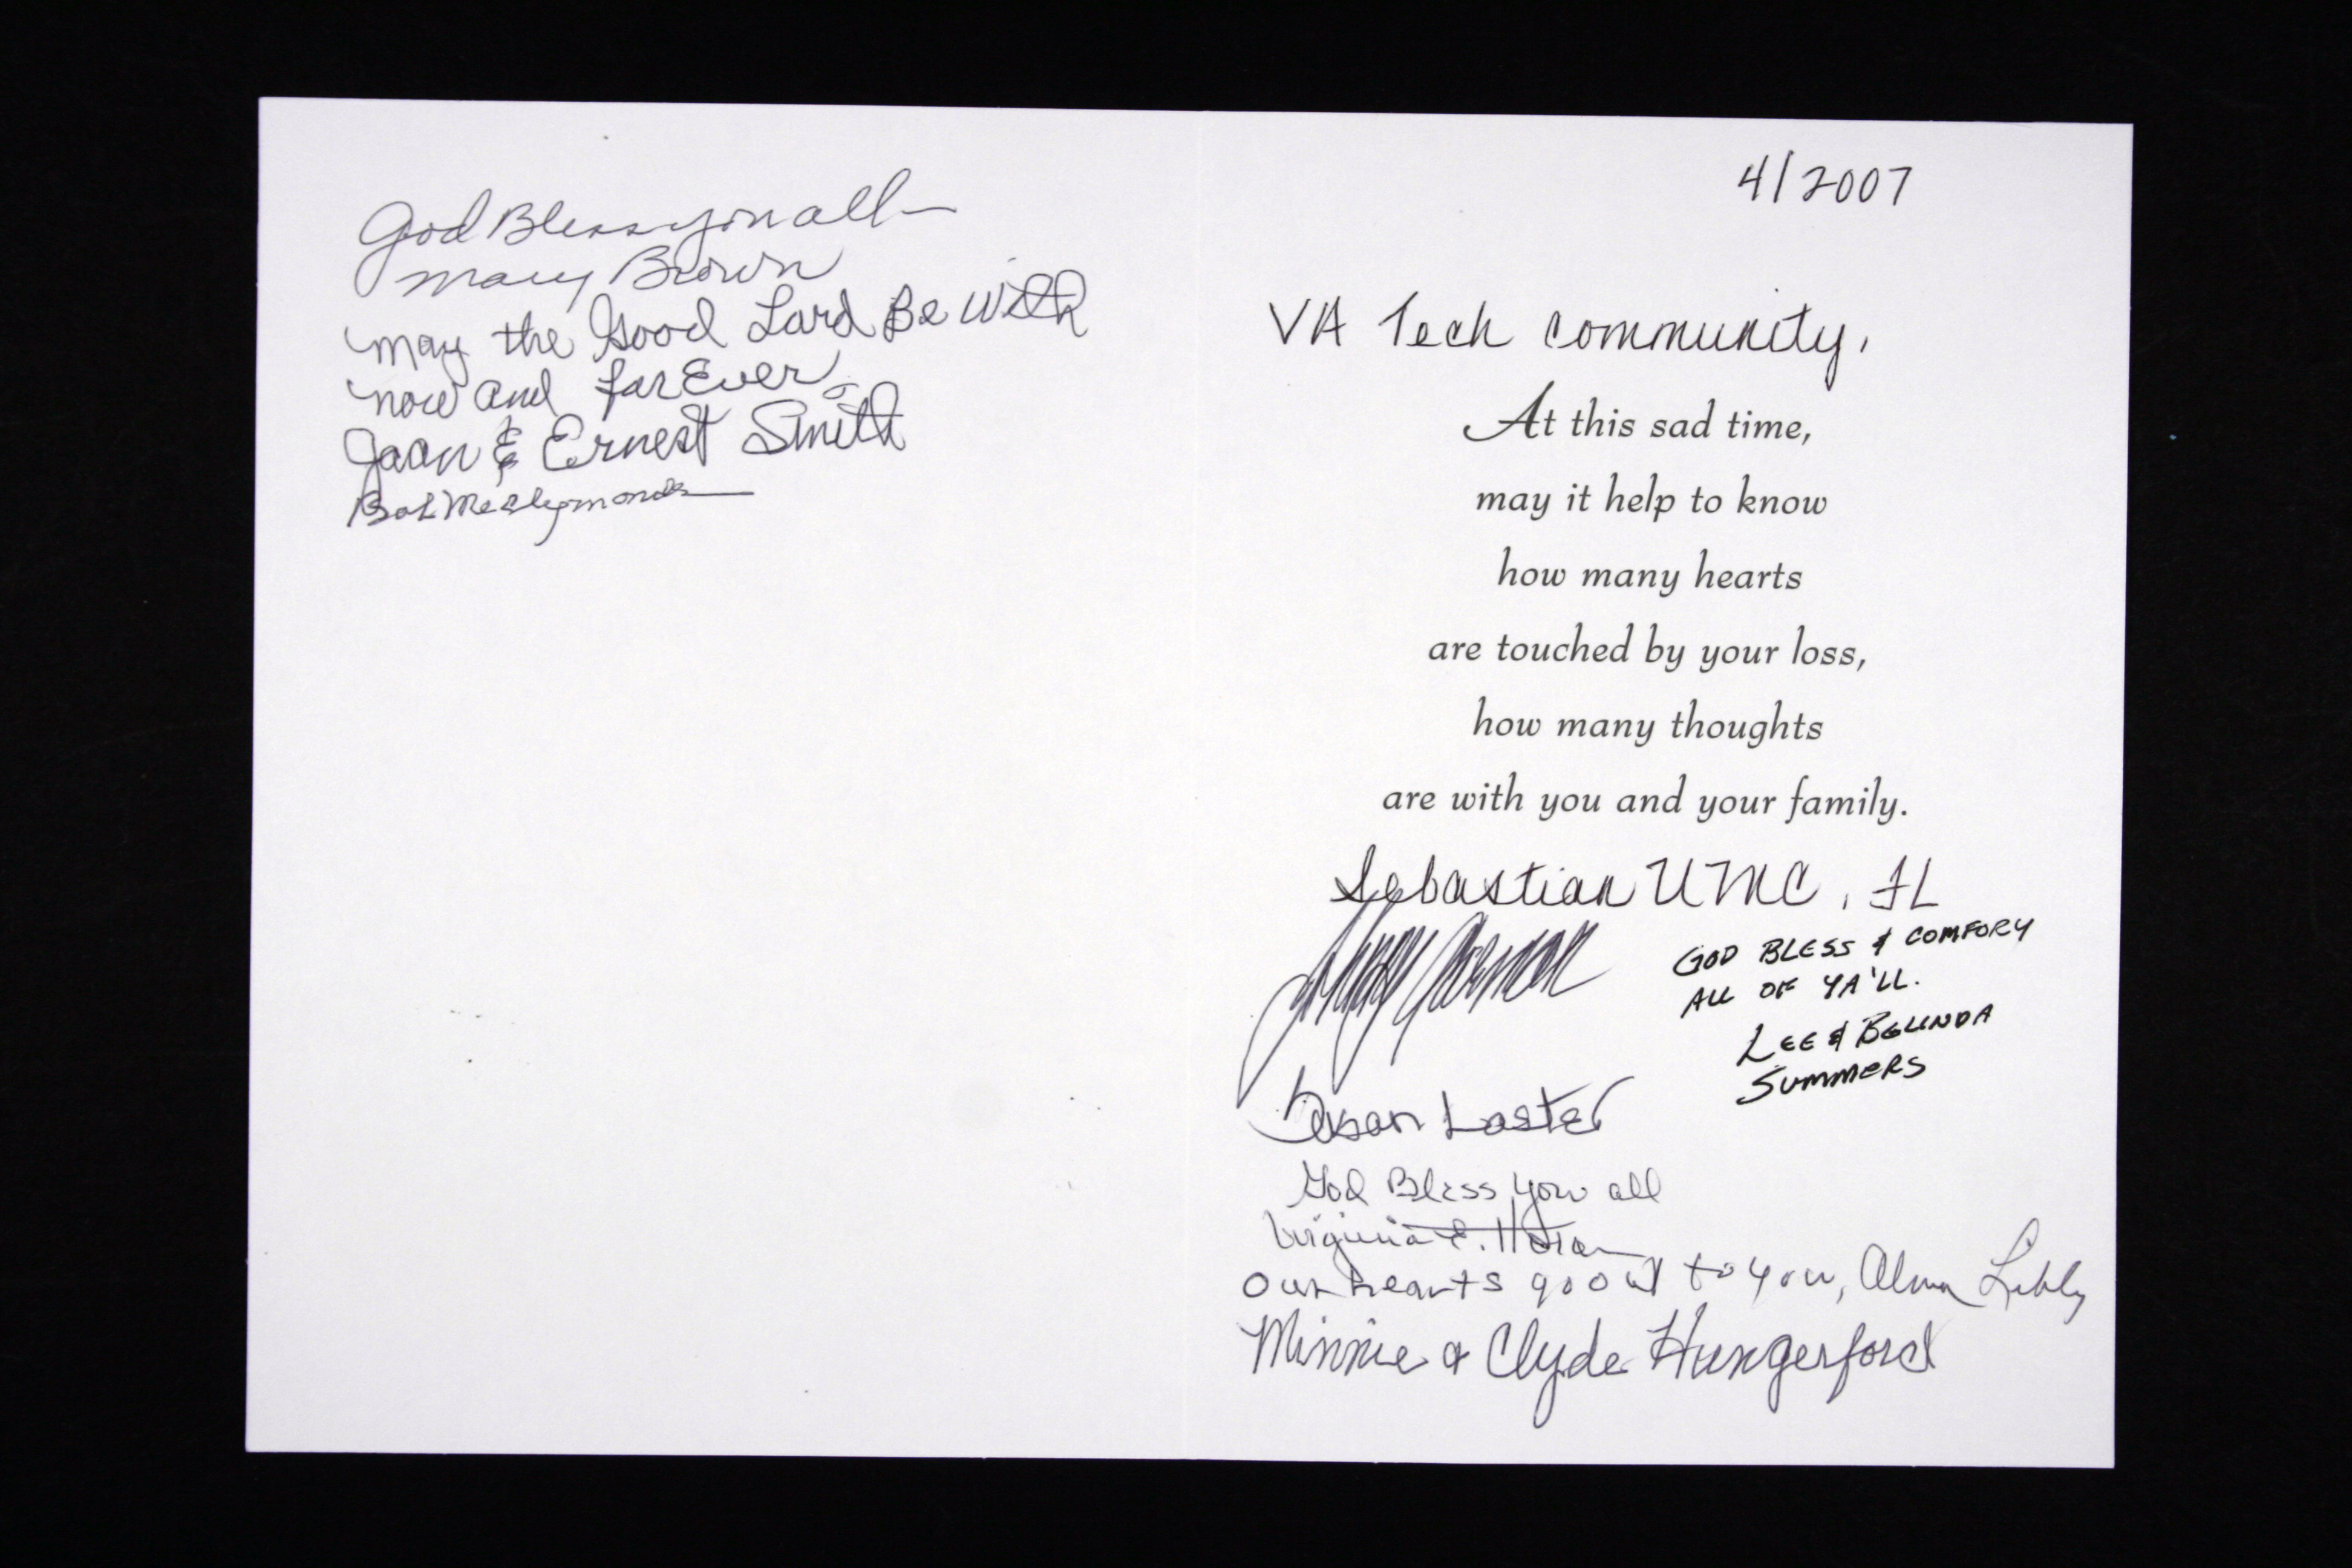 God Bless you all—
Mary Brown
May the Good Lord Be With
now and forEver
Joan & Ernest Smith
4/2007
VA Tech community,
At this sad time,
may it help to know
how many hearts
are touched by your loss,
how many thoughts
are with you and your family.
Sebastian UMC, FL
GOD BLESS & COMFORY
ALL OF YA'LL.
LEE & BELINDA
SUMMERS
Susan Laster
God Bless you all
Virginia E.
Our hearts go out to you, Alma Libby
Minnie & Clyde Hungerford